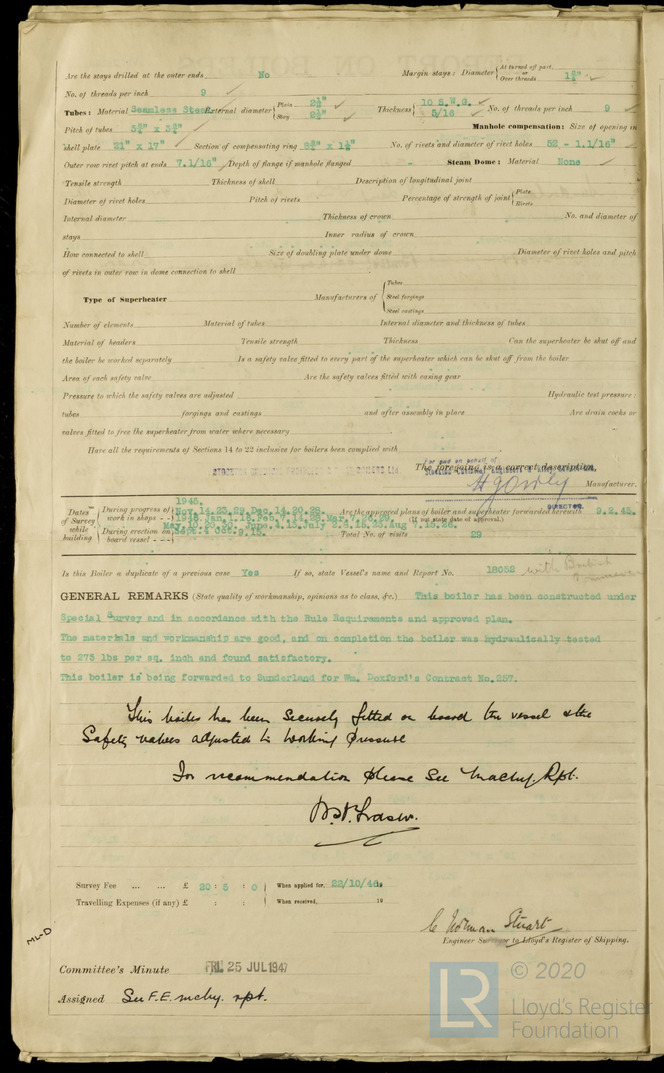 Are the stays drilled at the outer ends No Margin stays: Diameter { At turned off part, or Over threads 1¾"
No. of threads per inch 9
Tubes: Material Seamless Steel External diameter { Plain 2½" Stay 2½" Thickness { 10 S.W.G. 5/16 No. of threads per inch 9
Pitch of tubes 3¾" x 3¾" Manhole compensation: Size of opening in
shell plate 21" x 17" Section of compensating ring No. of rivets and diameter of rivet holes 52 - 1.1/16"
Outer row rivet pitch at ends 7.1/16" Depth of flange if manhole flanged - Steam Dome: Material None
Tensile strength Thickness of shell Description of longitudinal joint
Diameter of rivet holes Pitch of rivets Percentage of strength of joint { Plate Rivets
Internal diameter Thickness of crown No. and diameter of
stays Inner radius of crown
How connected to shell Size of doubling plate under dome Diameter of rivet holes and pitch
of rivets in outer row in dome connection to shell
Type of Superheater Manufacturers of { Tubes Steel forgings Steel castings
Number of elements Material of tubes Internal diameter and thickness of tubes
Material of headers Tensile strength Thickness Can the superheater be shut off and
the boiler be worked separately Is a safety valve fitted to every part of the superheater which can be shut off from the boiler
Area of each safety valve Are the safety valves fitted with easing gear
Pressure to which the safety valves are adjusted Hydraulic test pressure:
tubes forgings and castings and after assembly in place Are drain cocks or
valves fitted to free the superheater from water where necessary
Have all the requirements of Sections 14 to 22 inclusive for boilers been complied with
For and on behalf of
The foregoing is a correct description,
Manufacturer.
DIRECTOR.
1945.
Dates of Survey while building { During progress of work in shops - - Nov.14.23.29.Dec.14.20.28. Are the approved plans of boiler and superheater forwarded herewith 9.2.45.
1946.Jan.1.18.Feb.7.14.28.Mar.7.26.29. (If not state date of approval.)
During erection on board vessel - - - Sept.4 Oct.9.15. Total No. of visits 29
Is this Boiler a duplicate of a previous case Yes If so, state Vessel's name and Report No. 18052
GENERAL REMARKS (State quality of workmanship, opinions as to class, &c.) This boiler has been constructed under
Special Survey and in accordance with the Rule Requirements and approved plan.
The materials and workmanship are good, and on completion the boiler was hydraulically tested
to 275 lbs per sq. inch and found satisfactory.
This boiler is being forwarded to Sunderland for Wm. Doxford's Contract No.257.
This boiler has been securely fitted on board the vessel & the
Safety valves adjusted to working pressure
For recommendation please see Machy. Rpt.
Survey Fee ... ... £ 20 : 5 : 0 When applied for, 22/10/46.
Travelling Expenses (if any) £ : : When received, 19
C Norman Stuart
Engineer Surveyor to Lloyd's Register of Shipping.
Committee's Minute FRI. 25 JUL 1947
Assigned See F.E. mchy. rpt.
LR © 2020
Lloyd's Register
Foundation